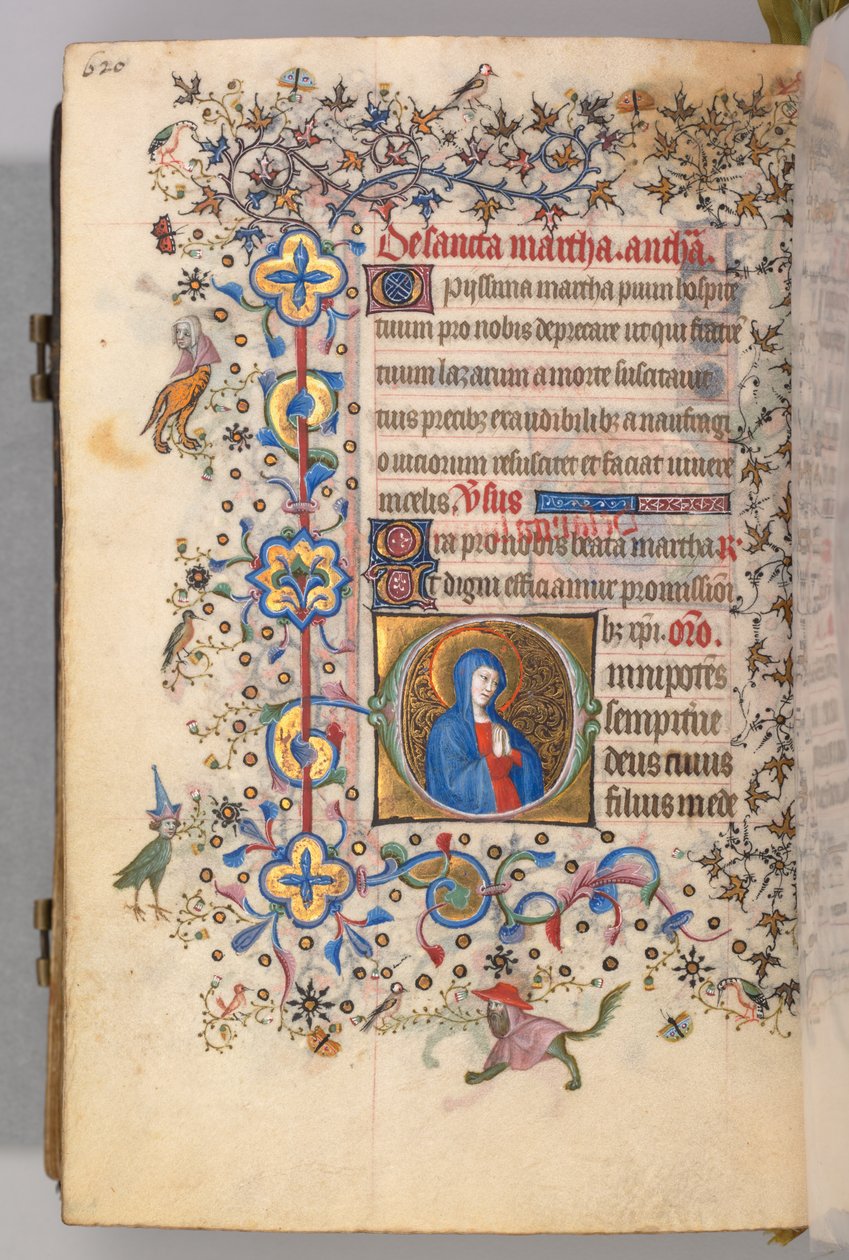 620
De sancta martha. antha.
O pyssima martha pium hospite
tuum pro nobis deprecare ut qui fratre
tuum lazarum a morte suscitauit
tuis precibz exaudibilibz a naufragi
o uiciorum resuscitet et faciat uiuere
in celis. Vsus
Ora pro nobis beata martha R
Ut digni efficiamur promissioni
bz xpi. oro.
Omnipotes
sempitne
deus cuius
filius in ede